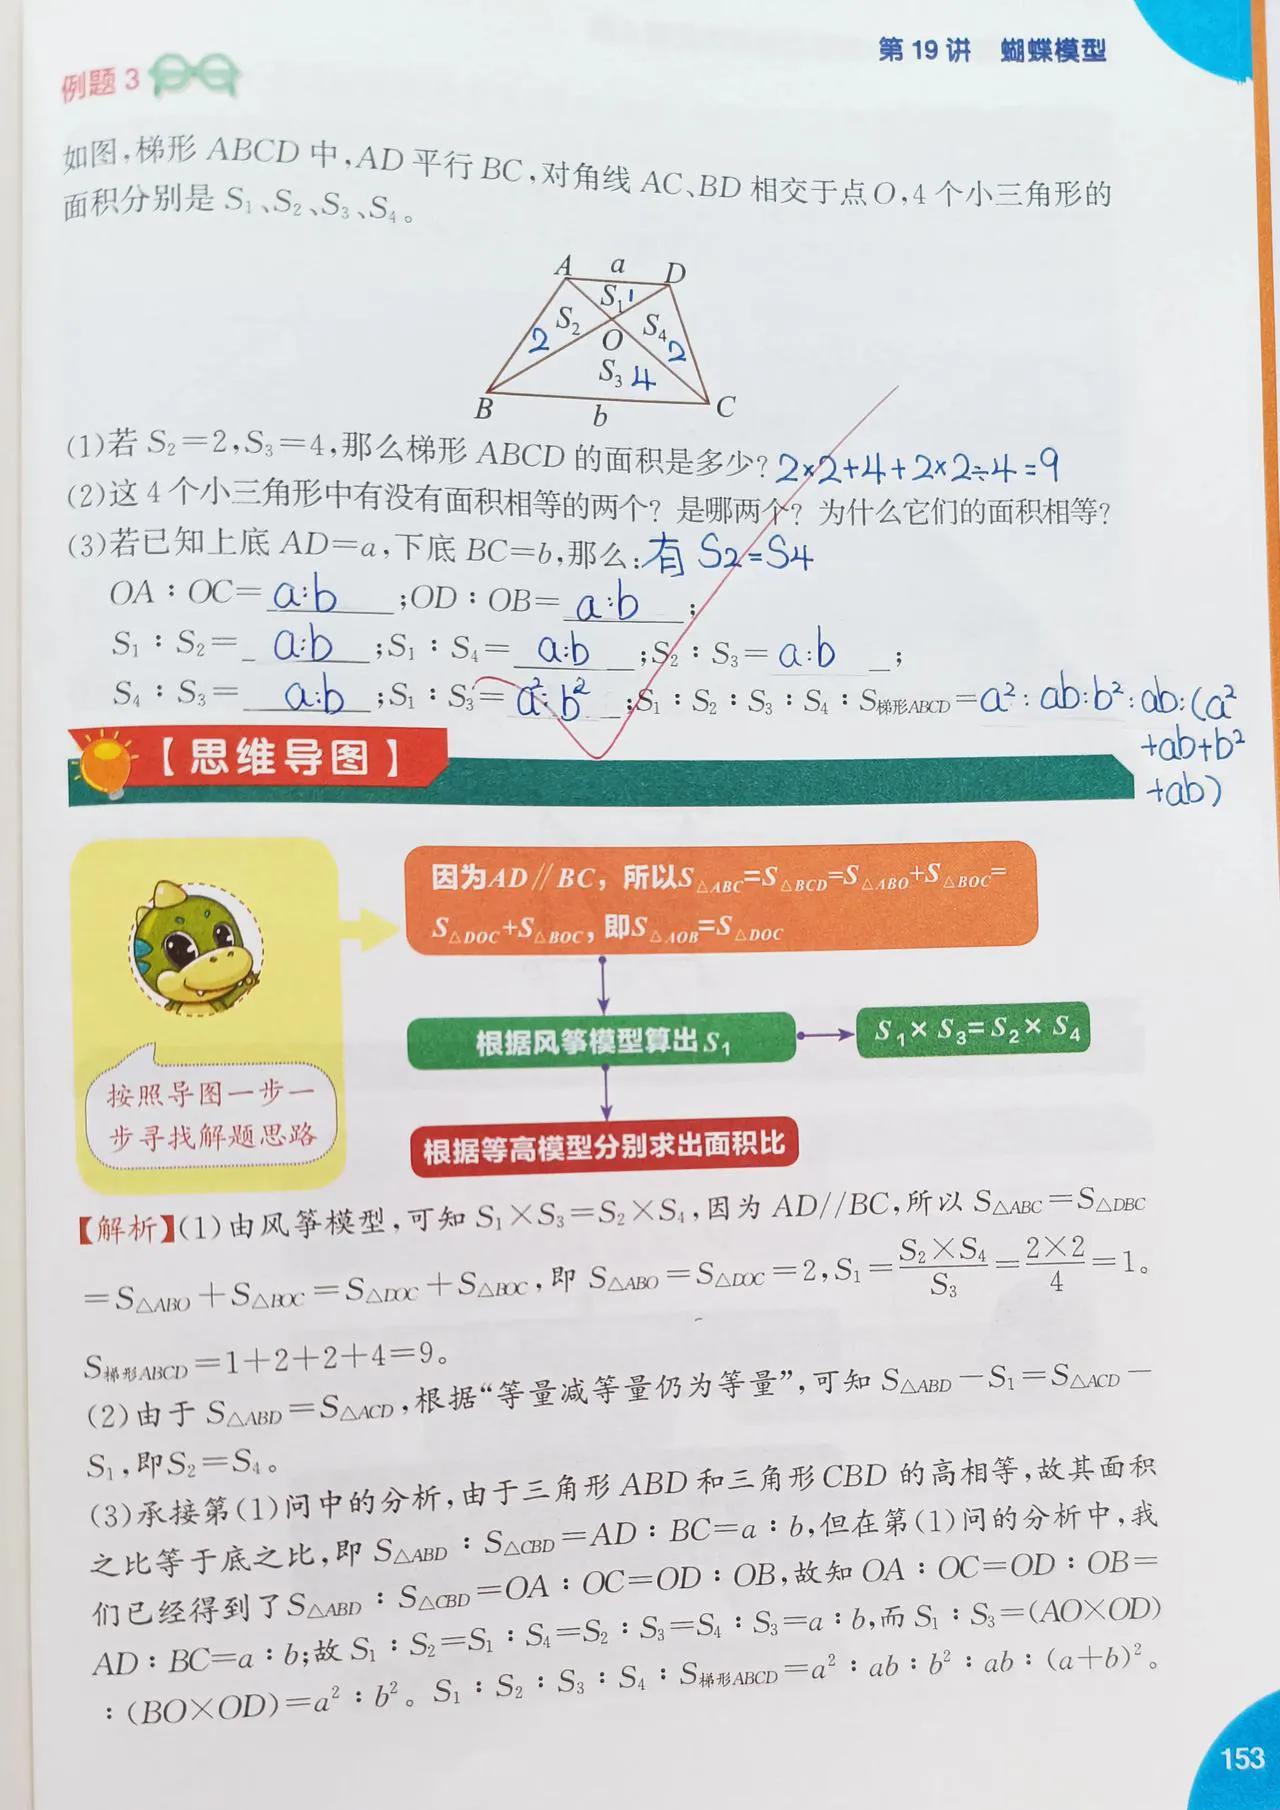 第 19 讲　蝴蝶模型
例题 3
如图,梯形 ABCD 中,AD 平行 BC,对角线 AC、BD 相交于点 O,4 个小三角形的
面积分别是 S₁、S₂、S₃、S₄。
A a D
S₁ 1
S₂ S₄
2 O 2
S₃ 4
B b C
(1)若 S₂=2,S₃=4,那么梯形 ABCD 的面积是多少? 2×2+4+2×2÷4=9
(2)这 4 个小三角形中有没有面积相等的两个? 是哪两个? 为什么它们的面积相等?
(3)若已知上底 AD=a,下底 BC=b,那么: 有 S2=S4
OA∶OC= a:b ;OD∶OB= a:b ;
S₁∶S₂= a:b ;S₁∶S₄= a:b ;S₂∶S₃= a:b ;
S₄∶S₃= a:b ;S₁∶S₃= a²:b² ;S₁∶S₂∶S₃∶S₄∶S梯形ABCD= a²:ab:b²:ab:(a²
+ab+b²
+ab)
【思维导图】
因为AD∥BC，所以S△ABC=S△BCD=S△ABO+S△BOC=
S△DOC+S△BOC，即S△AOB=S△DOC
根据风筝模型算出S₁
S₁×S₃=S₂×S₄
按照导图一步一
步寻找解题思路
根据等高模型分别求出面积比
【解析】(1)由风筝模型,可知 S₁×S₃=S₂×S₄,因为 AD//BC,所以 S△ABC=S△DBC
=S△ABO+S△BOC=S△DOC+S△BOC,即 S△ABO=S△DOC=2,S₁=S₂×S₄/S₃=2×2/4=1。
S梯形ABCD=1+2+2+4=9。
(2)由于 S△ABD=S△ACD,根据“等量减等量仍为等量”,可知 S△ABD-S₁=S△ACD-
S₁,即S₂=S₄。
(3)承接第(1)问中的分析,由于三角形 ABD 和三角形 CBD 的高相等,故其面积
之比等于底之比,即 S△ABD∶S△CBD=AD∶BC=a∶b,但在第(1)问的分析中,我
们已经得到了S△ABD∶S△CBD=OA∶OC=OD∶OB,故知 OA∶OC=OD∶OB=
AD∶BC=a∶b;故 S₁∶S₂=S₁∶S₄=S₂∶S₃=S₄∶S₃=a∶b,而 S₁∶S₃=(AO×OD)
∶(BO×OD)=a²∶b²。S₁∶S₂∶S₃∶S₄∶S梯形ABCD=a²∶ab∶b²∶ab∶(a+b)²。
153